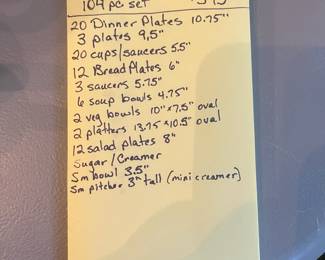 104 pc set
20 Dinner Plates 10.75"
3 plates 9,5"
20 cups/saucers 5.5"
12 Bread Plates 6"
3 saucers 5.75"
6 soup bowls 4.75"
2 veg bowls 10"x7.5" oval
2 platters 13.75 x 10.5" oval
12 salad plates 8"
Sugar/Creamer
Sm bowl 3.5"
Sm pitcher 3" tall (mini creamer)